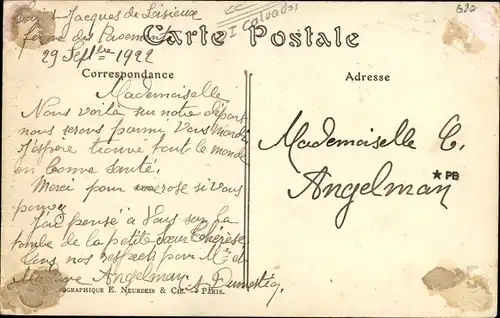 Saint-Jacques de Lisieux
ferme des
29 Septbre 1922
I Calvados
620
Carte Postale
Correspondance
Adresse
Mademoiselle
Nous voilà sur notre départ
nous serons parmi Vous mardi
J'espère trouvé tout le monde
en bonne santé.
Merci pour rose si vous
pouvez
J'ai pensé à Vous sur la
tombe de la petite Sœur Thérèse
tous nos respects pour Mr et
Madame Angelman
Mademoiselle C.
Angelman
★PB
E. Neurdein & Cie. - Paris.